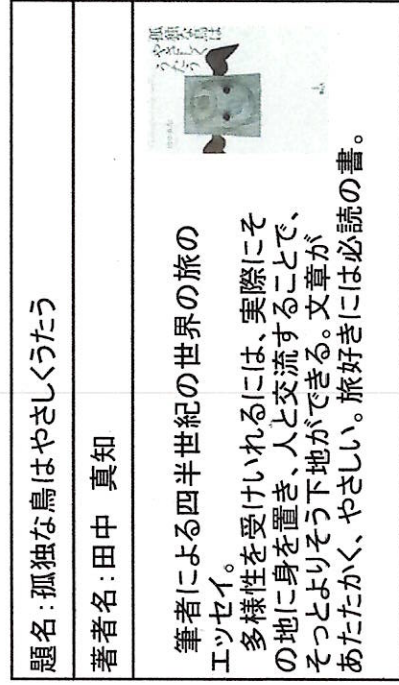 題名:孤独な鳥はやさしくうたう
著者名:田中 真知
筆者による四半世紀の世界の旅の
エッセイ。
多様性を受けいれるには、実際にそ
の地に身を置き、人と交流することで、
そっとよりそう下地ができる。文章が
あたたかく、やさしい。旅好きには必読の書。
孤独な鳥は
やさしく
うたう